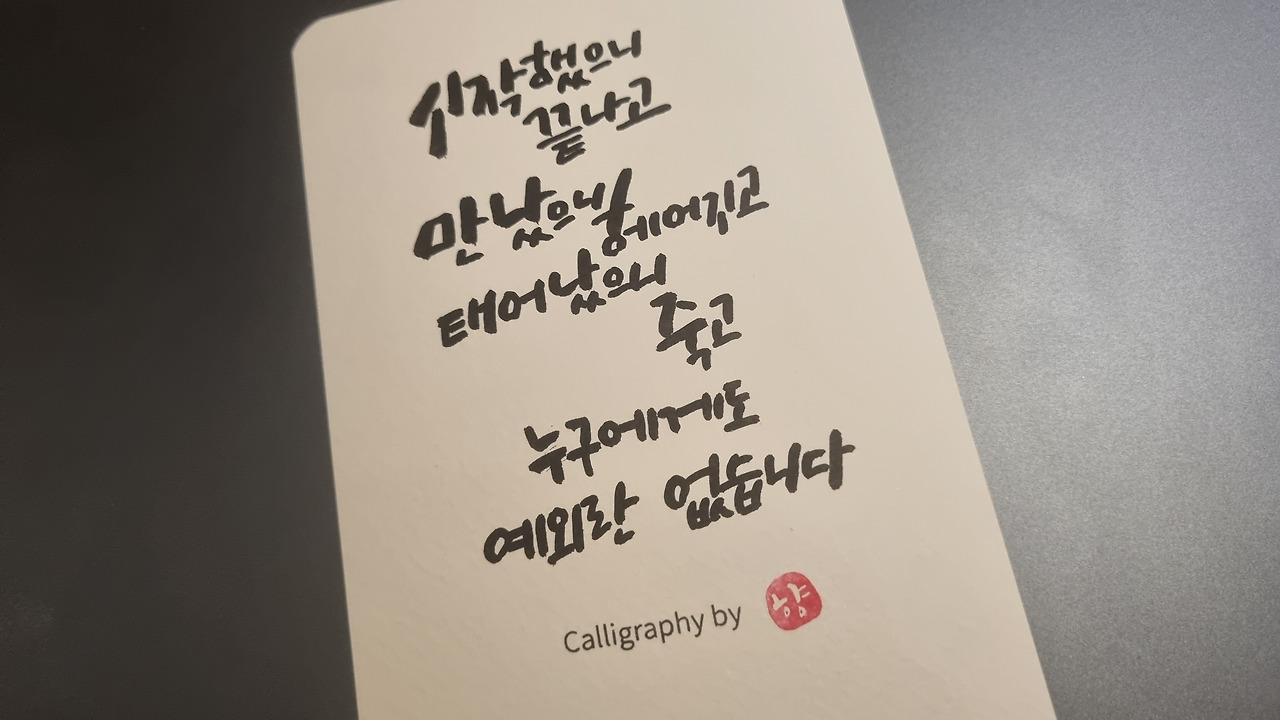 시작했으니
끝나고
만났으니 헤어지고
태어났으니
죽고
누구에게도
예외란 없습니다
Calligraphy by